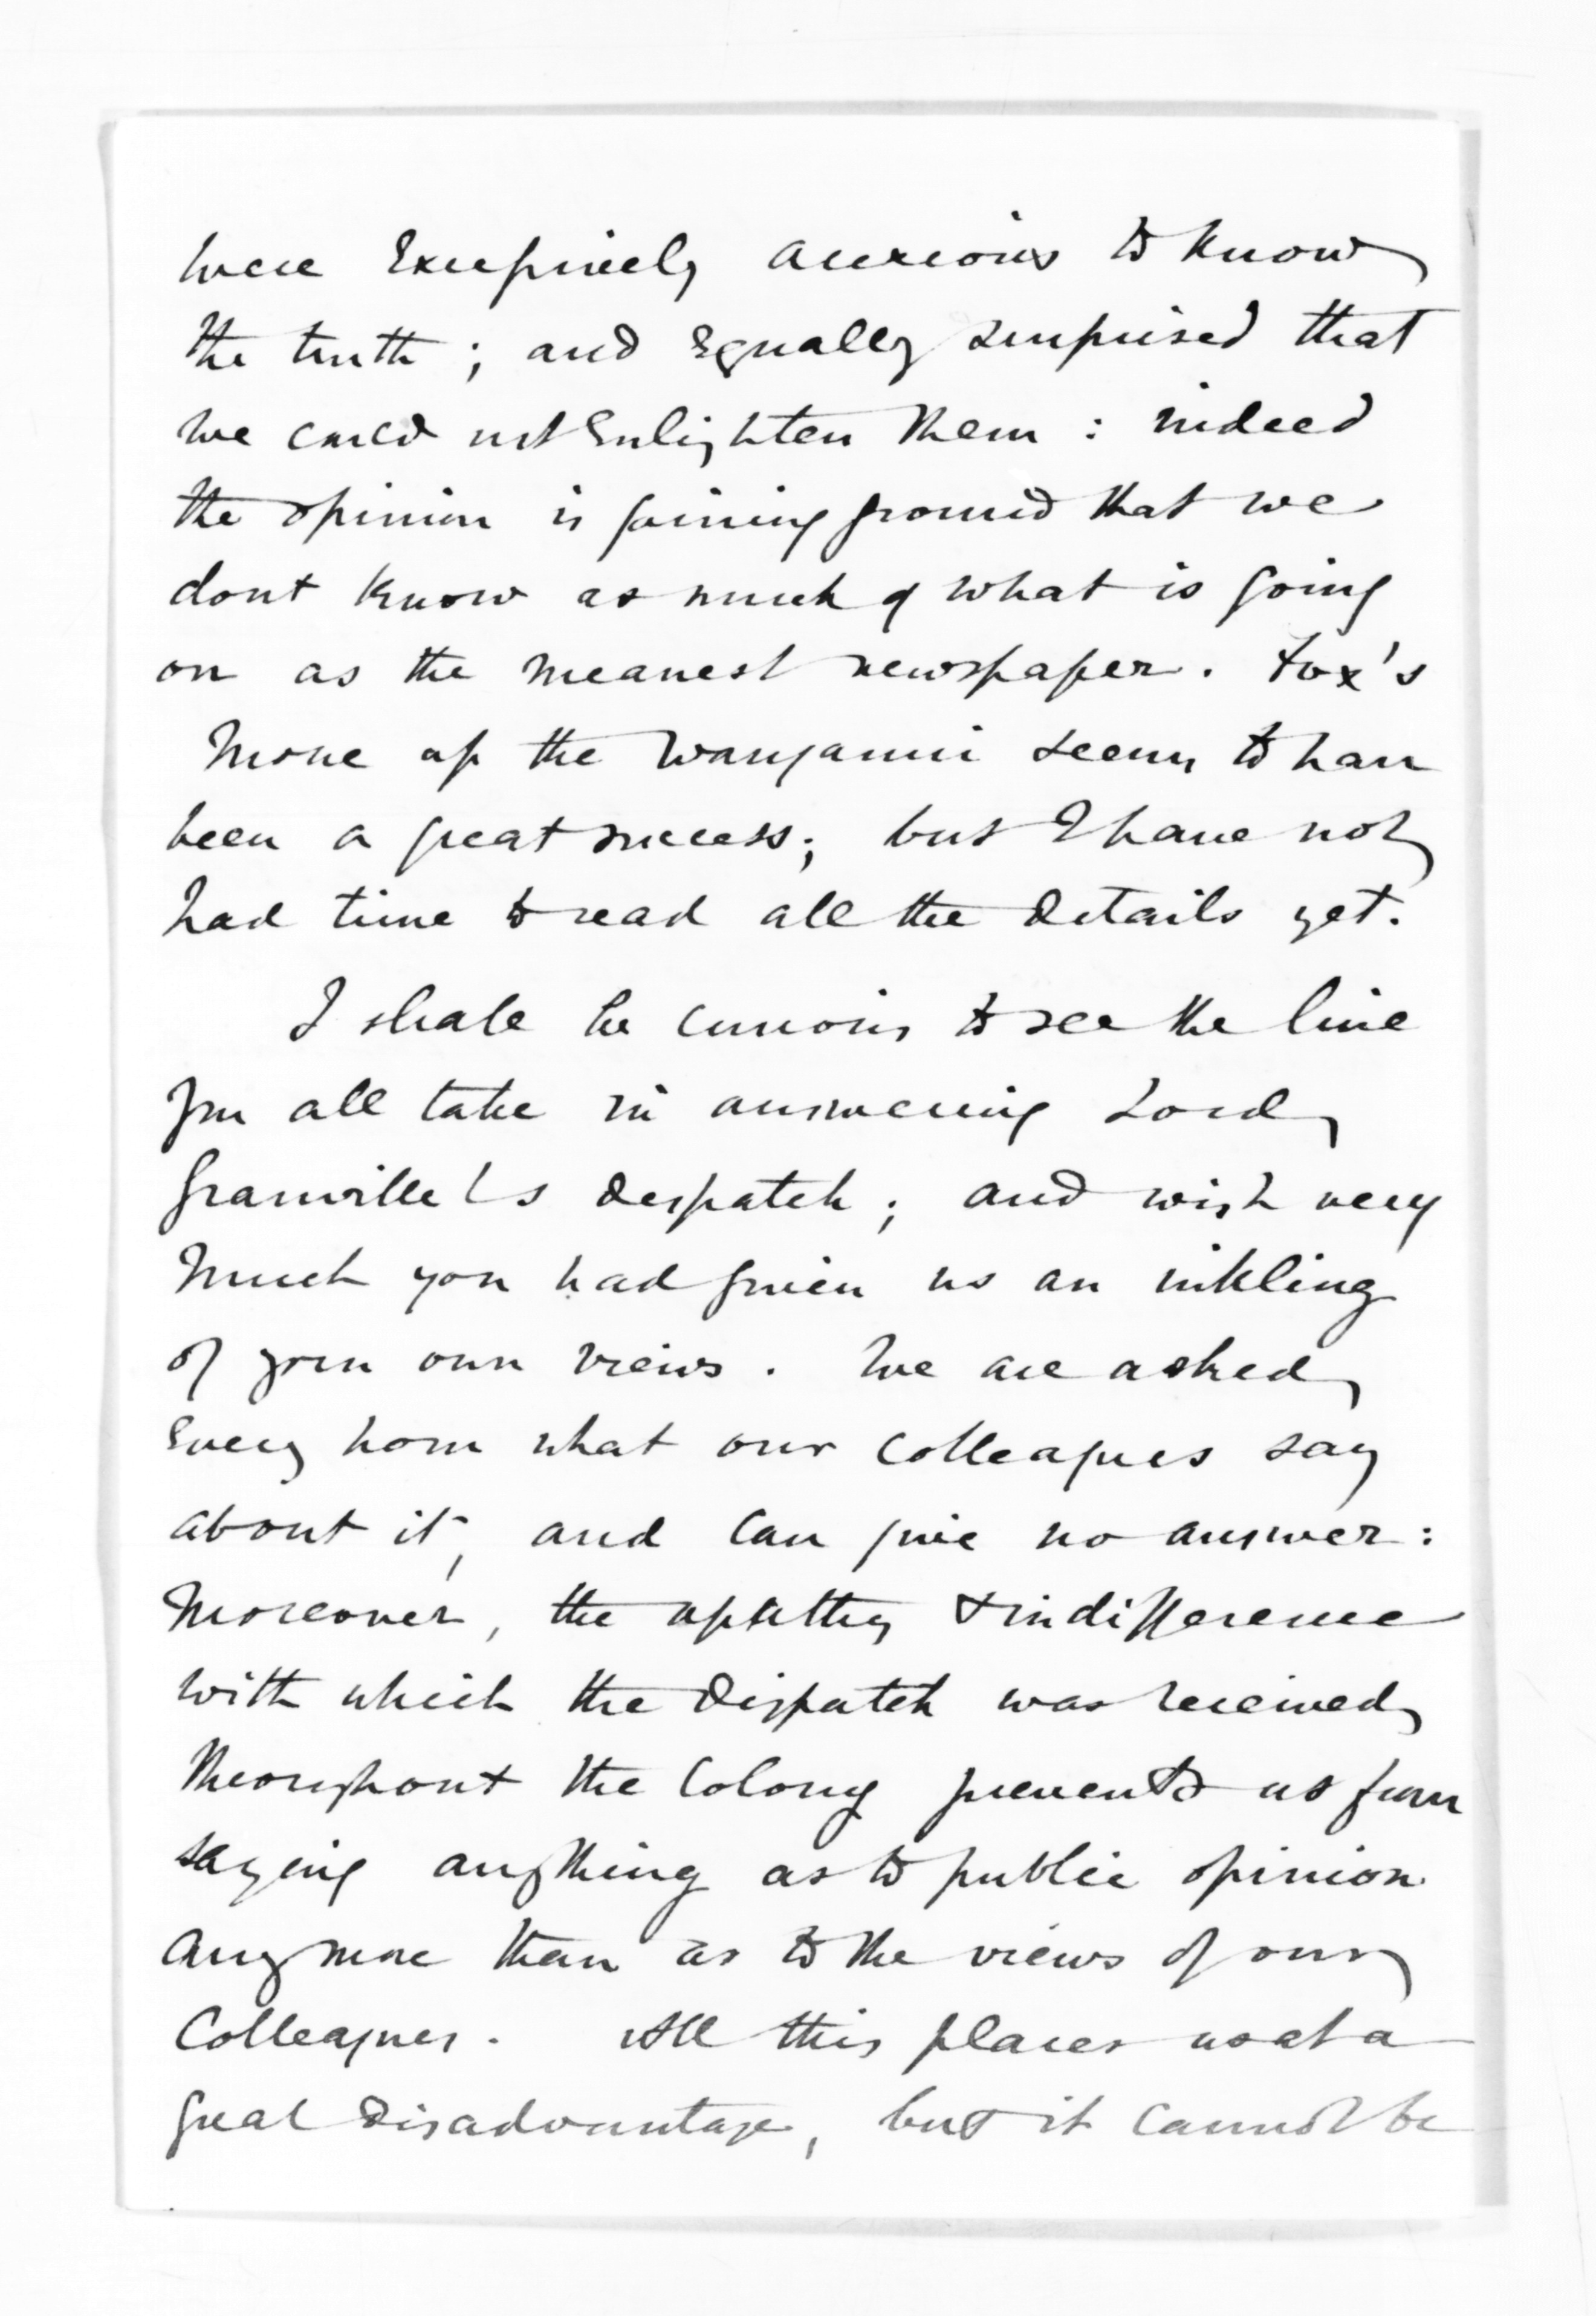 were excessively anxious to know
the truth ; and equally surprised that
we could not enlighten them : indeed
the opinion is gaining ground that we
dont know as much of what is going
on as the meanest newspaper. Fox's
move up the Wanganui seems to have
been a great success; but I have not
had time to read all the details yet.
I shall be curious to see the line
you all take in answering Lord
Granville's despatch ; and wish very
much you had given us an inkling
of your own views. We are asked
every hour what our Colleagues say
about it, and can give no answer :
moreover, the apathy & indifference
with which the Dispatch was received
throughout the Colony prevents us from
saying anything as to public opinion
any more than as to the views of our
Colleagues. All this places us at a
great disadvantage, but it cannot be